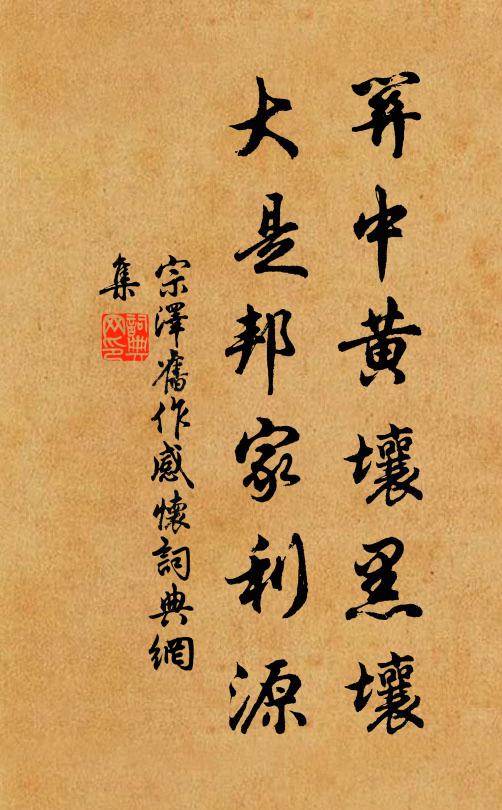 中黃壤黑壤
大是邦家利源
宗澤舊作感懷詞典網
集
詞典
网印